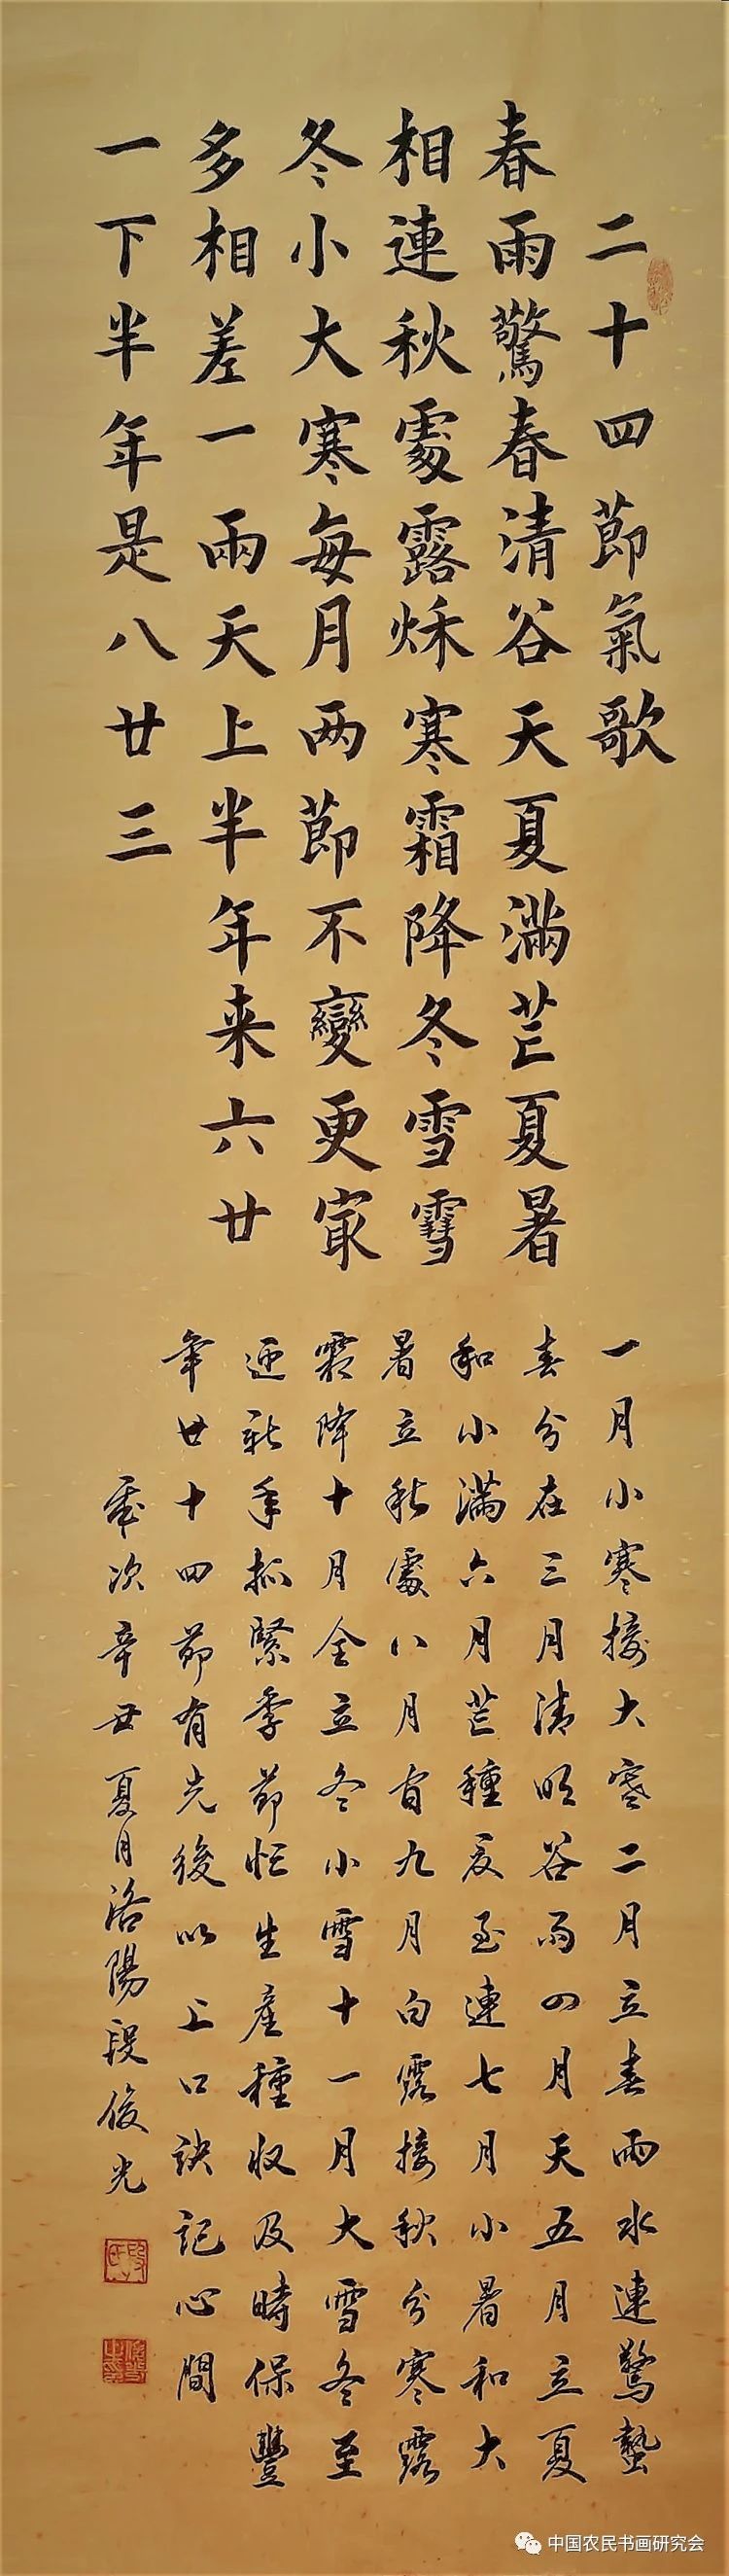 二十四節氣歌
春雨驚春清谷天夏滿芒夏暑
相連秋處露秌寒霜降冬雪雪
冬小大寒每月两節不變更㝡
多相差一兩天上半年来六廿
一下半年是八廿三
一月小寒接大寒二月立春雨水連驚蟄
春分在三月清明谷雨四月天五月立夏
和小滿六月芒種夏至連七月小暑和大
暑立秋處八月宜九月白露接秋分寒露
霜降十月全立冬小雪十一月大雪冬至
迎新年抓緊季節忙生產種収及時保豐
年廿十四節有先後以上口訣記心間
歲次辛丑夏月洛陽段俊光
中国农民书画研究会